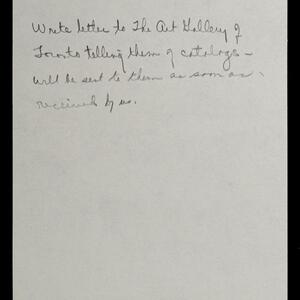 Write letter to The Art Gallery of
Toronto telling them of catalogs -
will be sent to them as soon as
received by us.